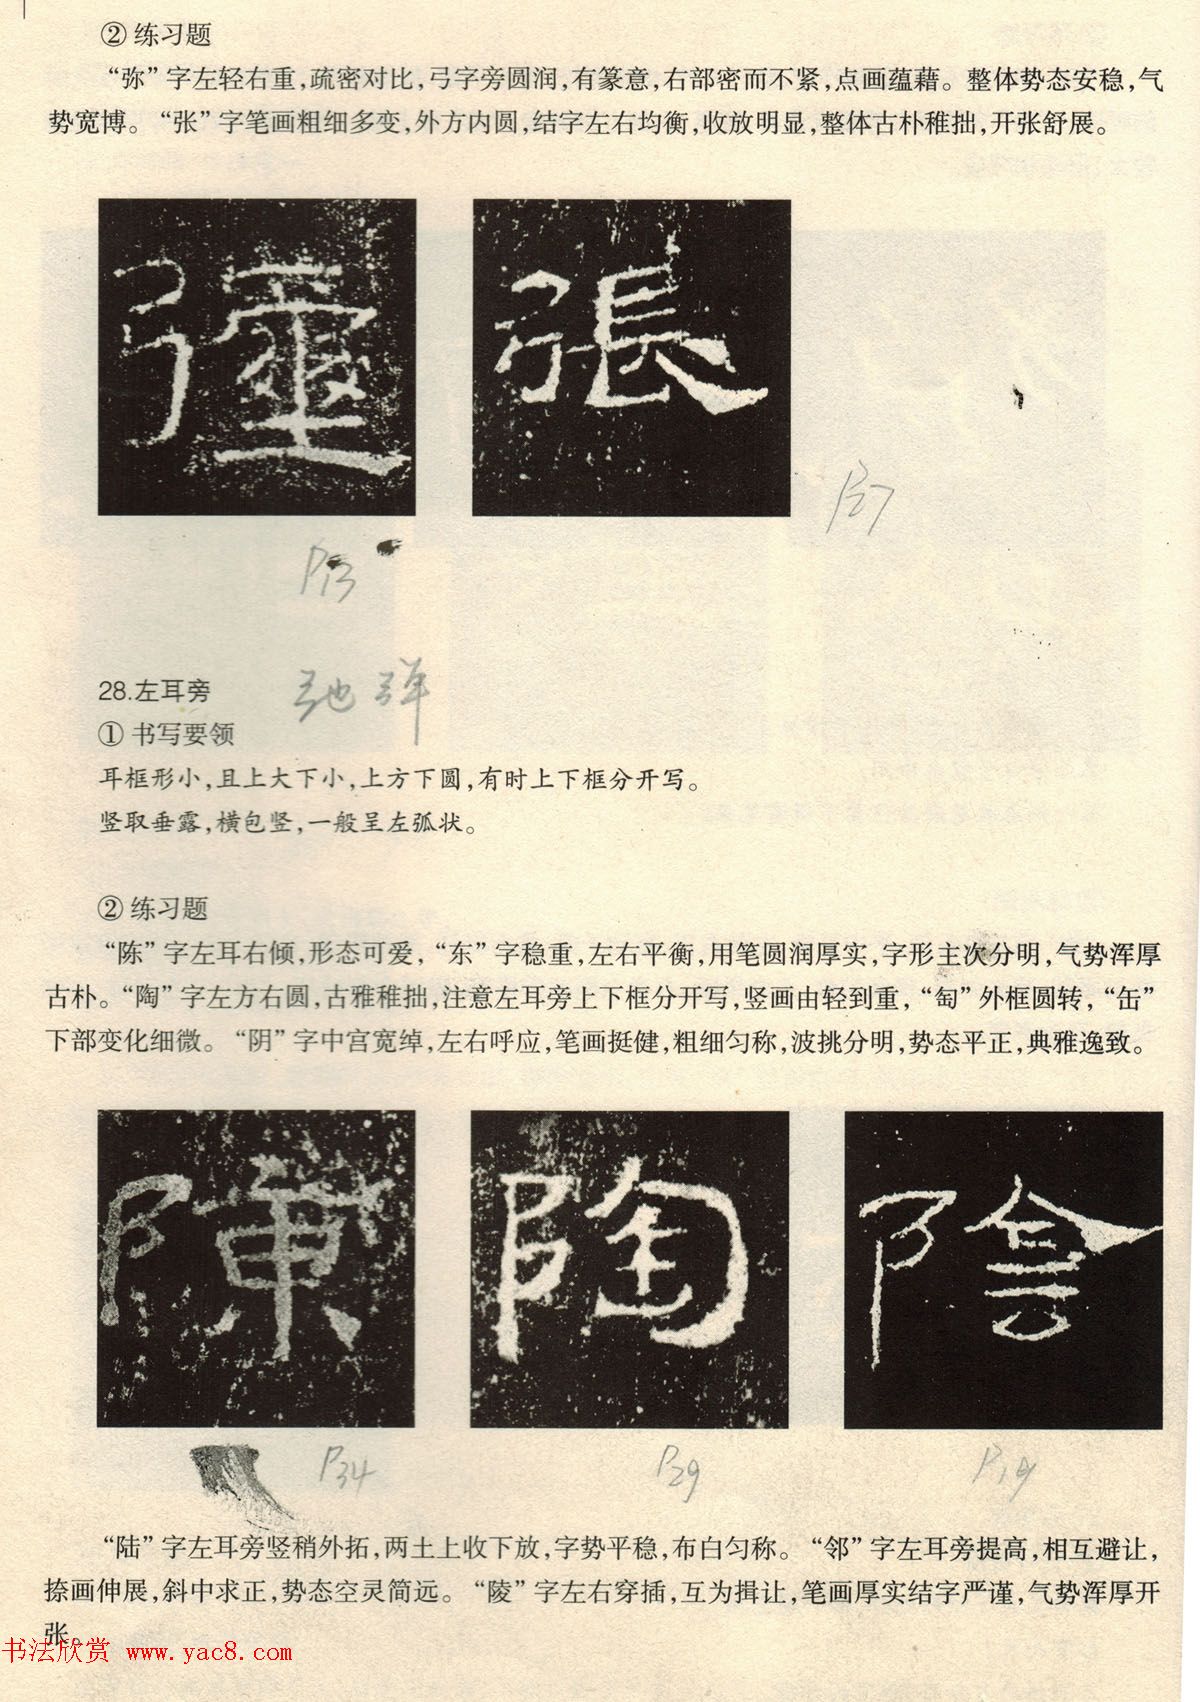 ② 练习题
“弥”字左轻右重，疏密对比，弓字旁圆润，有篆意，右部密而不紧，点画蕴藉。整体势态安稳，气
势宽博。“张”字笔画粗细多变，外方内圆，结字左右均衡，收放明显，整体古朴稚拙，开张舒展。
張
P13
P27
28.左耳旁
弛 弹
① 书写要领
耳框形小，且上大下小，上方下圆，有时上下框分开写。
竖取垂露，横包竖，一般呈左弧状。
② 练习题
“陈”字左耳右倾，形态可爱，“东”字稳重，左右平衡，用笔圆润厚实，字形主次分明，气势浑厚
古朴。“陶”字左方右圆，古雅稚拙，注意左耳旁上下框分开写，竖画由轻到重，“匋”外框圆转，“缶”
下部变化细微。“阴”字中宫宽绰，左右呼应，笔画挺健，粗细匀称，波挑分明，势态平正，典雅逸致。
陳 陶 陰
P34 P29 P19
“陆”字左耳旁竖稍外拓，两土上收下放，字势平稳，布白匀称。“邻”字左耳旁提高，相互避让，
捺画伸展，斜中求正，势态空灵简远。“陵”字左右穿插，互为揖让，笔画厚实结字严谨，气势浑厚开
张。
书法欣赏 www.yac8.com